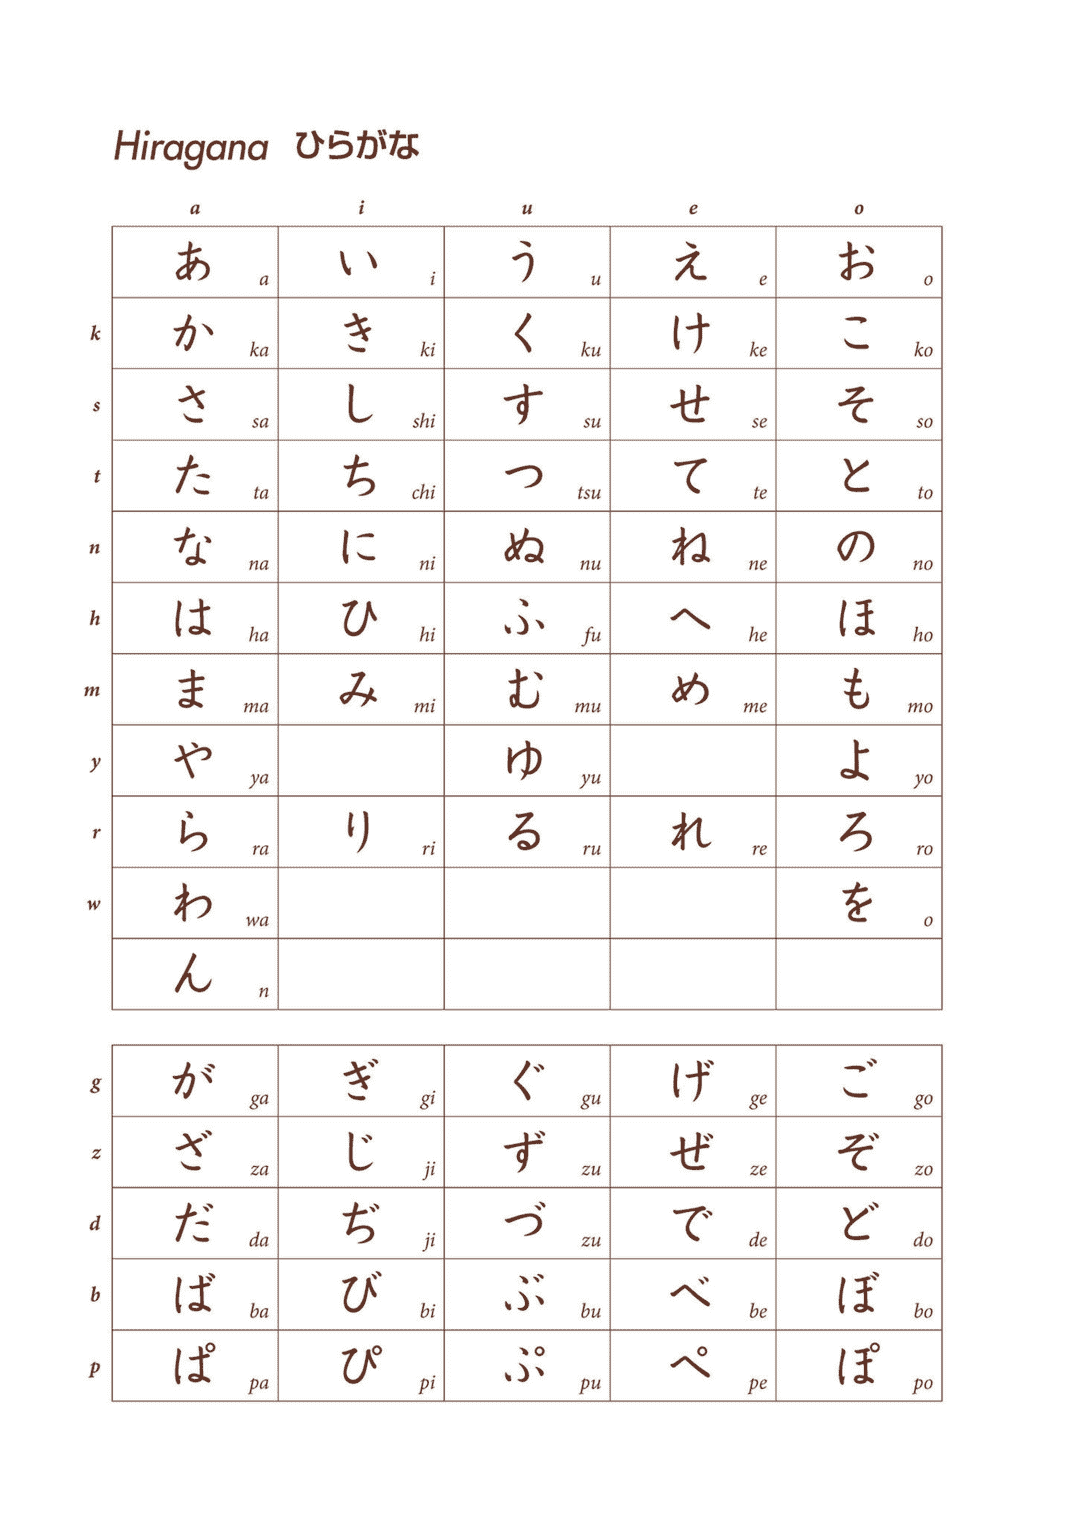 Hiragana ひらがな
a i u e o
あ a い i う u え e お o
k か ka き ki く ku け ke こ ko
s さ sa し shi す su せ se そ so
t た ta ち chi つ tsu て te と to
n な na に ni ぬ nu ね ne の no
h は ha ひ hi ふ fu へ he ほ ho
m ま ma み mi む mu め me も mo
y や ya ゆ yu よ yo
r ら ra り ri る ru れ re ろ ro
w わ wa を o
ん n
g が ga ぎ gi ぐ gu げ ge ご go
z ざ za じ ji ず zu ぜ ze ぞ zo
d だ da ぢ ji づ zu で de ど do
b ば ba び bi ぶ bu べ be ぼ bo
p ぱ pa ぴ pi ぷ pu ぺ pe ぽ po